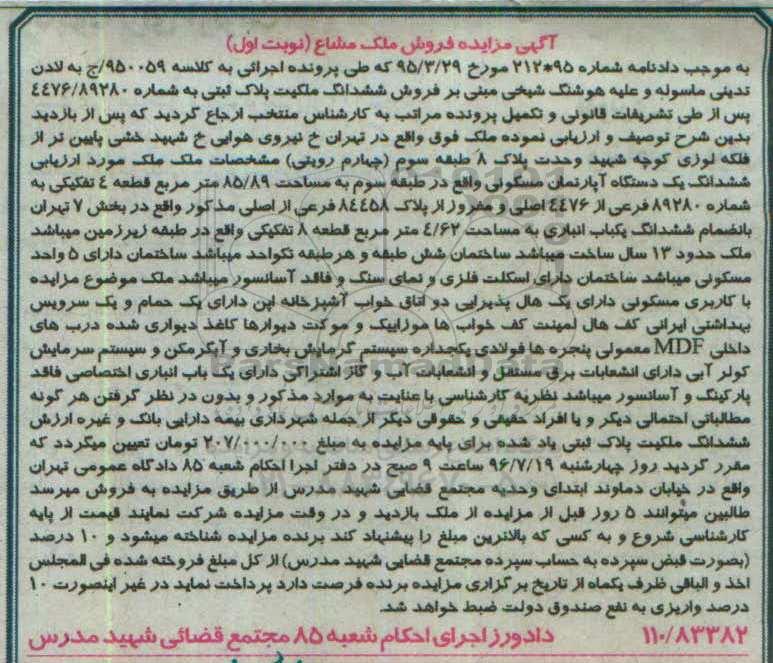 آگهی مزایده فروش ملک مشاع (نوبت اول)
به موجب دادنامه شماره ۹۵*۲۱۲ مورخ ۹۵/۳/۲۹ که طی پرونده اجرائی به کلاسه ۹۵۰۰۵۹/ج به لادن
تدینی ماسوله و علیه هوشنگ شیخی مبنی بر فروش ششدانگ ملکیت پلاک ثبتی به شماره ۴۴۷۶/۸۹۲۸۰
پس از طی تشریفات قانونی و تکمیل پرونده مراتب به کارشناس منتخب ارجاع گردید که پس از بازدید
بدین شرح توصیف و ارزیابی نموده ملک فوق واقع در تهران خ نیروی هوایی خ شهید خشی پایین تر از
فلکه لوزی کوچه شهید وحدت پلاک ۸ طبقه سوم (چهارم رویتی) مشخصات ملک ملک مورد ارزیابی
ششدانگ یک دستگاه آپارتمان مسکونی واقع در طبقه سوم به مساحت ۸۵/۸۹ متر مربع قطعه ۴ تفکیکی به
شماره ۸۹۲۸۰ فرعی از ۴۴۷۶ اصلی و مفروز از پلاک ۸۴۴۵۸ فرعی از اصلی مذکور واقع در بخش ۷ تهران
بانضمام ششدانگ یکباب انباری به مساحت ۴/۶۲ متر مربع قطعه ۸ تفکیکی واقع در طبقه زیرزمین میباشد
ملک حدود ۱۳ سال ساخت میباشد ساختمان شش طبقه و هرطبقه تکواحد میباشد ساختمان دارای ۵ واحد
مسکونی میباشد ساختمان دارای اسکلت فلزی و نمای سنگ و فاقد آسانسور میباشد ملک موضوع مزایده
با کاربری مسکونی دارای یک هال پذیرایی دو اتاق خواب آشپزخانه اپن دارای یک حمام و یک سرویس
بهداشتی ایرانی کف هال لمینت کف خواب ها موزاییک و موکت دیوارها کاغذ دیواری شده درب های
داخلی MDF معمولی پنجره ها فولادی یکجداره سیستم گرمایش بخاری و آبگرمکن و سیستم سرمایش
کولر آبی دارای انشعابات برق مستقل و انشعابات آب و گاز اشتراکی دارای یک باب انباری اختصاصی فاقد
پارکینگ و آسانسور میباشد نظریه کارشناسی با عنایت به موارد مذکور و بدون در نظر گرفتن هر گونه
مطالباتی احتمالی دیگر و یا افراد حقیقی و حقوقی دیگر از جمله شهرداری بیمه دارایی بانک و غیره ارزش
ششدانگ ملکیت پلاک ثبتی یاد شده برای پایه مزایده به مبلغ ۲۰۷/۰۰۰/۰۰۰ تومان تعیین میگردد که
مقرر گردید روز چهارشنبه ۹۶/۷/۱۹ ساعت ۹ صبح در دفتر اجرا احکام شعبه ۸۵ دادگاه عمومی تهران
واقع در خیابان دماوند ابتدای وحدیه مجتمع قضایی شهید مدرس از طریق مزایده به فروش میرسد
طالبین میتوانند ۵ روز قبل از مزایده از ملک بازدید و در وقت مزایده شرکت نمایند قیمت از پایه
کارشناسی شروع و به کسی که بالاترین مبلغ را پیشنهاد کند برنده مزایده شناخته میشود و ۱۰ درصد
(بصورت قبض سپرده به حساب سپرده مجتمع قضایی شهید مدرس) از کل مبلغ فروخته شده فی المجلس
اخذ و الباقی ظرف یکماه از تاریخ برگزاری مزایده برنده فرصت دارد پرداخت نماید در غیر اینصورت ۱۰
درصد واریزی به نفع صندوق دولت ضبط خواهد شد.
۱۱۰/۸۳۳۸۲ دادورز اجرای احکام شعبه ۸۵ مجتمع قضائی شهید مدرس